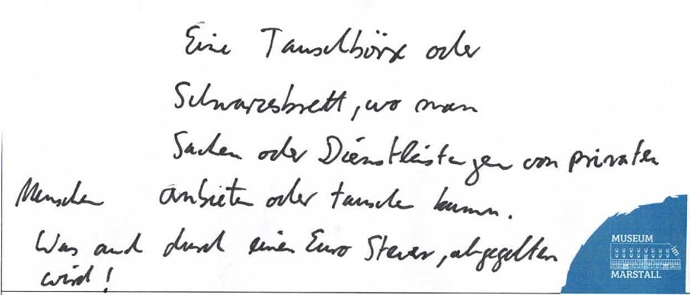 Eine Tauschbörse oder
Schwarzesbrett, wo man
Sachen oder Dienstleistungen von privaten
Menschen anbieten oder tauschen kann.
Was auch durch einen Euro Steuer, abgegolten
wird!
MUSEUM
im
MARSTALL